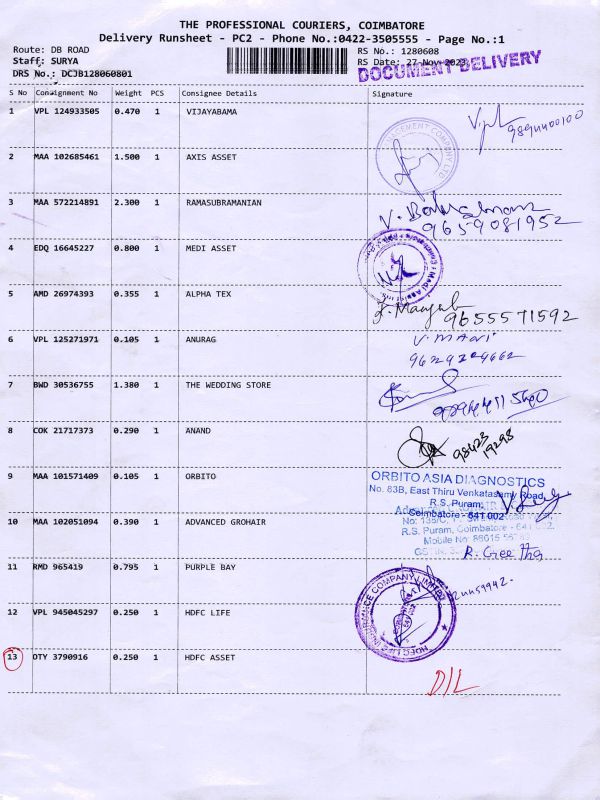 THE PROFESSIONAL COURIERS, COIMBATORE
Delivery Runsheet - PC2 - Phone No.:0422-3505555 - Page No.:1
Route: DB ROAD
RS No.: 1280608
Staff: SURYA
RS Date: 27 Nov 2023
DRS No.: DCJB128060801
DOCUMENT DELIVERY
S No Consignment No Weight PCS Consignee Details Signature
1 VPL 124933505 0.470 1 VIJAYABAMA
2 MAA 102685461 1.500 1 AXIS ASSET
3 MAA 572214891 2.300 1 RAMASUBRAMANIAN
9659081952
4 EDQ 16645227 0.800 1 MEDI ASSET
5 AMD 26974393 0.355 1 ALPHA TEX
9655571592
6 VPL 125271971 0.105 1 ANURAG
7 BWD 30536755 1.380 1 THE WEDDING STORE
8 COK 21717373 0.290 1 ANAND
98423
19298
9 MAA 101571409 0.105 1 ORBITO
ORBITO ASIA DIAGNOSTICS
No. 83B, East Thiru Venkatasamy Road,
R.S. Puram,
Coimbatore - 641 002
10 MAA 102051094 0.390 1 ADVANCED GROHAIR
R.S. Puram, Coimbatore - 641 002.
R. Geetha
11 RMD 965419 0.795 1 PURPLE BAY
12 VPL 945045297 0.250 1 HDFC LIFE
HDFC LIFE INSURANCE COMPANY LIMITED
13 OTY 3790916 0.250 1 HDFC ASSET
D/L